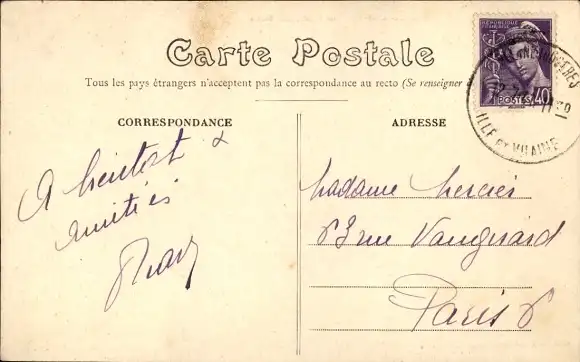 Carte Postale
Tous les pays étrangers n'acceptent pas la correspondance au recto (Se renseigner
CORRESPONDANCE
ADRESSE
A bientot &
amitiés
Madame Mercier
63 rue Vaugirard
Paris 6
POSTES 40
ILLE ET VILAINE